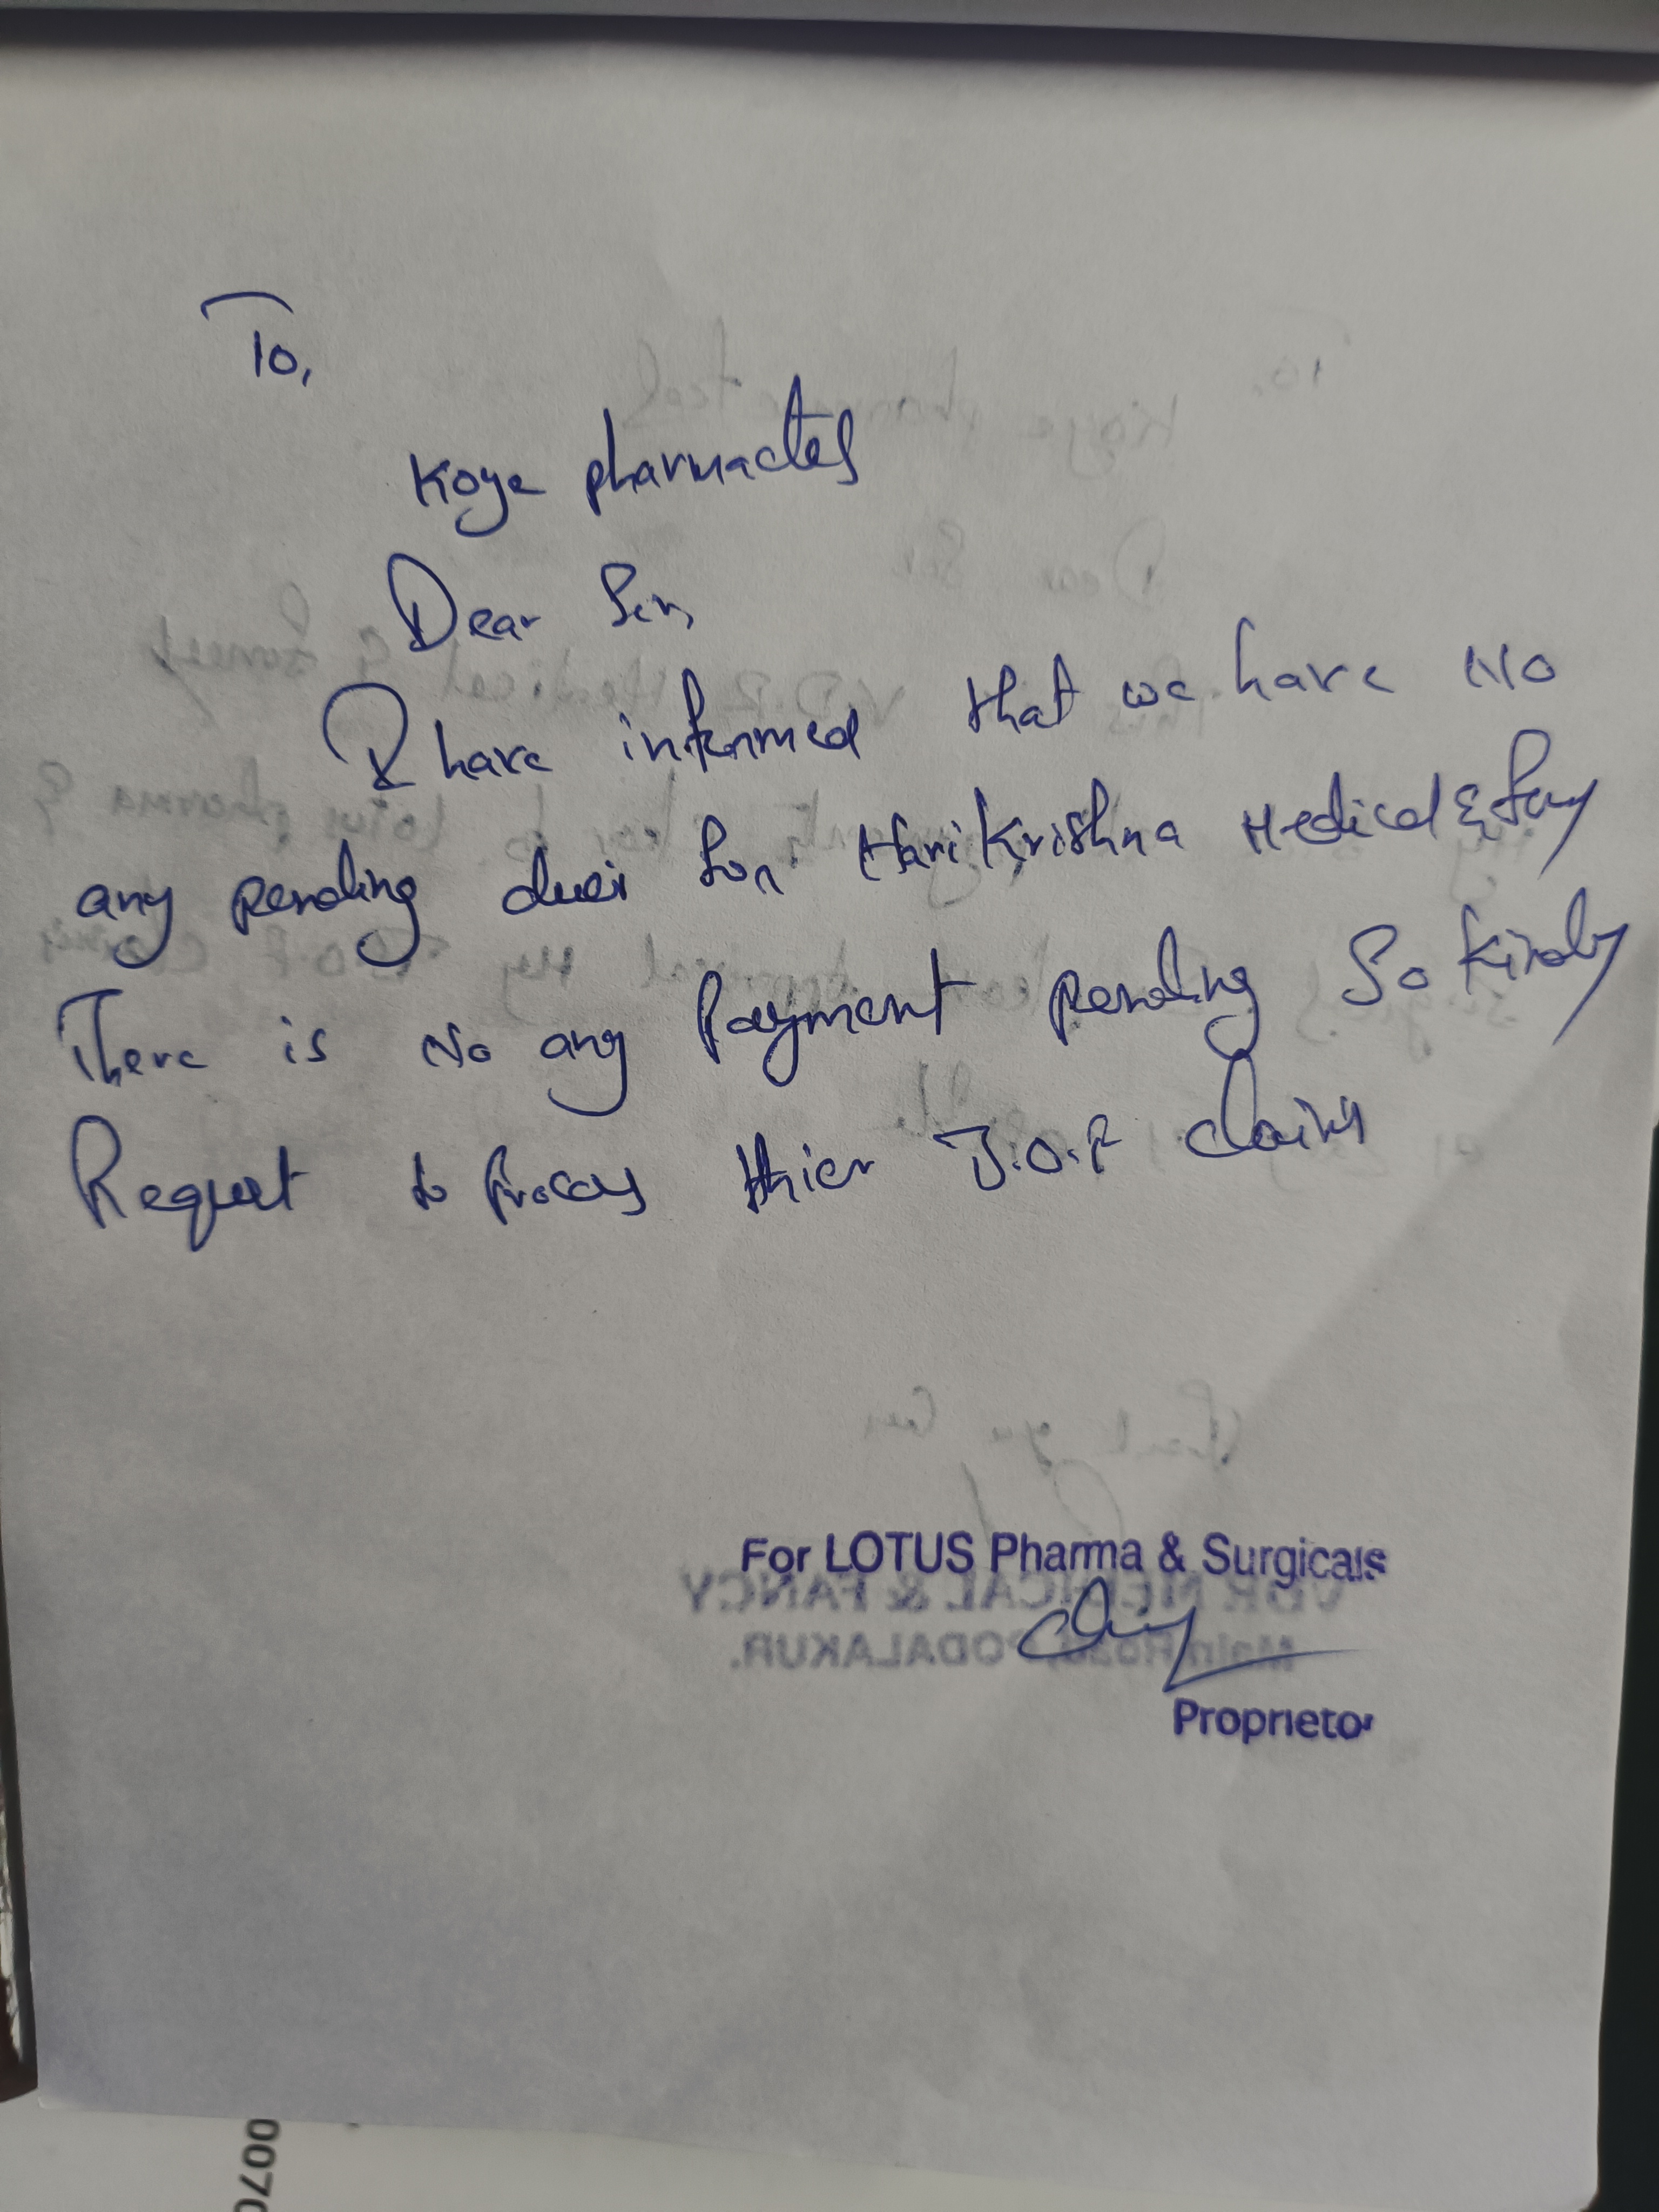 To,
Koye pharmacies
Dear Sir,
I have informed that we have No
any pending dues for Hari Krishna Medical &
There is No any Payment pending So Kindly
Request to Process thier T.O.F claims
For LOTUS Pharma & Surgicals
Proprietor
VDR MEDICAL & FANCY
Main Road, PODALAKUR.
0070